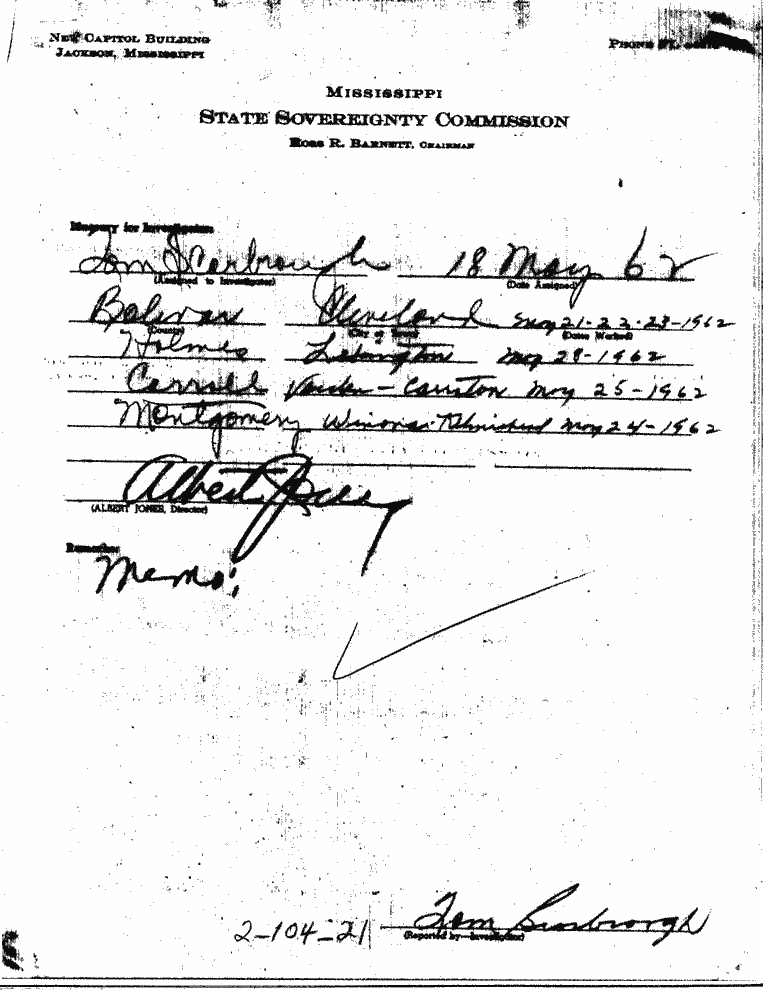 NEW CAPITOL BUILDING
JACKSON, MISSISSIPPI
PHONE
MISSISSIPPI
STATE SOVEREIGNTY COMMISSION
ROSS R. BARNETT, CHAIRMAN
for Investigation
Tom Scarbrough 18 May 62
(Assigned to Investigator) (Date Assigned)
Bolivar Cleveland May 21-22-23-1962
(County) (City or Town) (Dates Worked)
Holmes Lexington May 28-1962
Carroll Vaiden - May 25-1962
Montgomery Winona May 24-1962
Albert Jones
(ALBERT JONES, Director)
Remarks:
Memo:
2-104-21 Tom Scarbrough
(Reported by—Investigator)